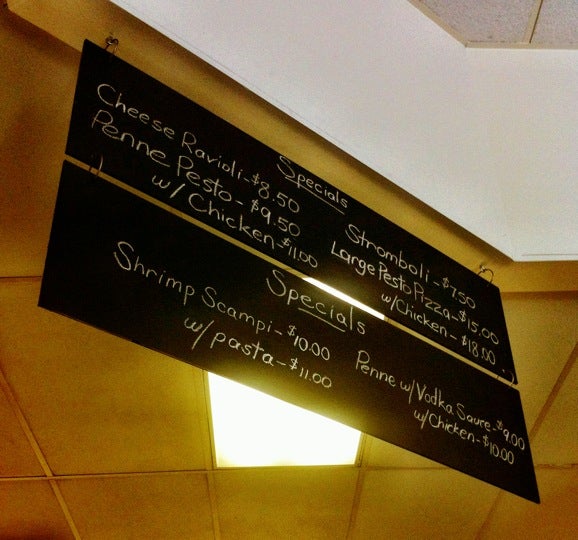 Specials
Cheese Ravioli-$8.50
Penne Pesto-$9.50
w/ Chicken-$11.00
Stromboli-$7.50
Large Pesto Pizza-$15.00
w/Chicken-$18.00
Specials
Shrimp Scampi-$10.00
w/pasta-$11.00
Penne w/Vodka Sauce-$9.00
w/Chicken-$10.00